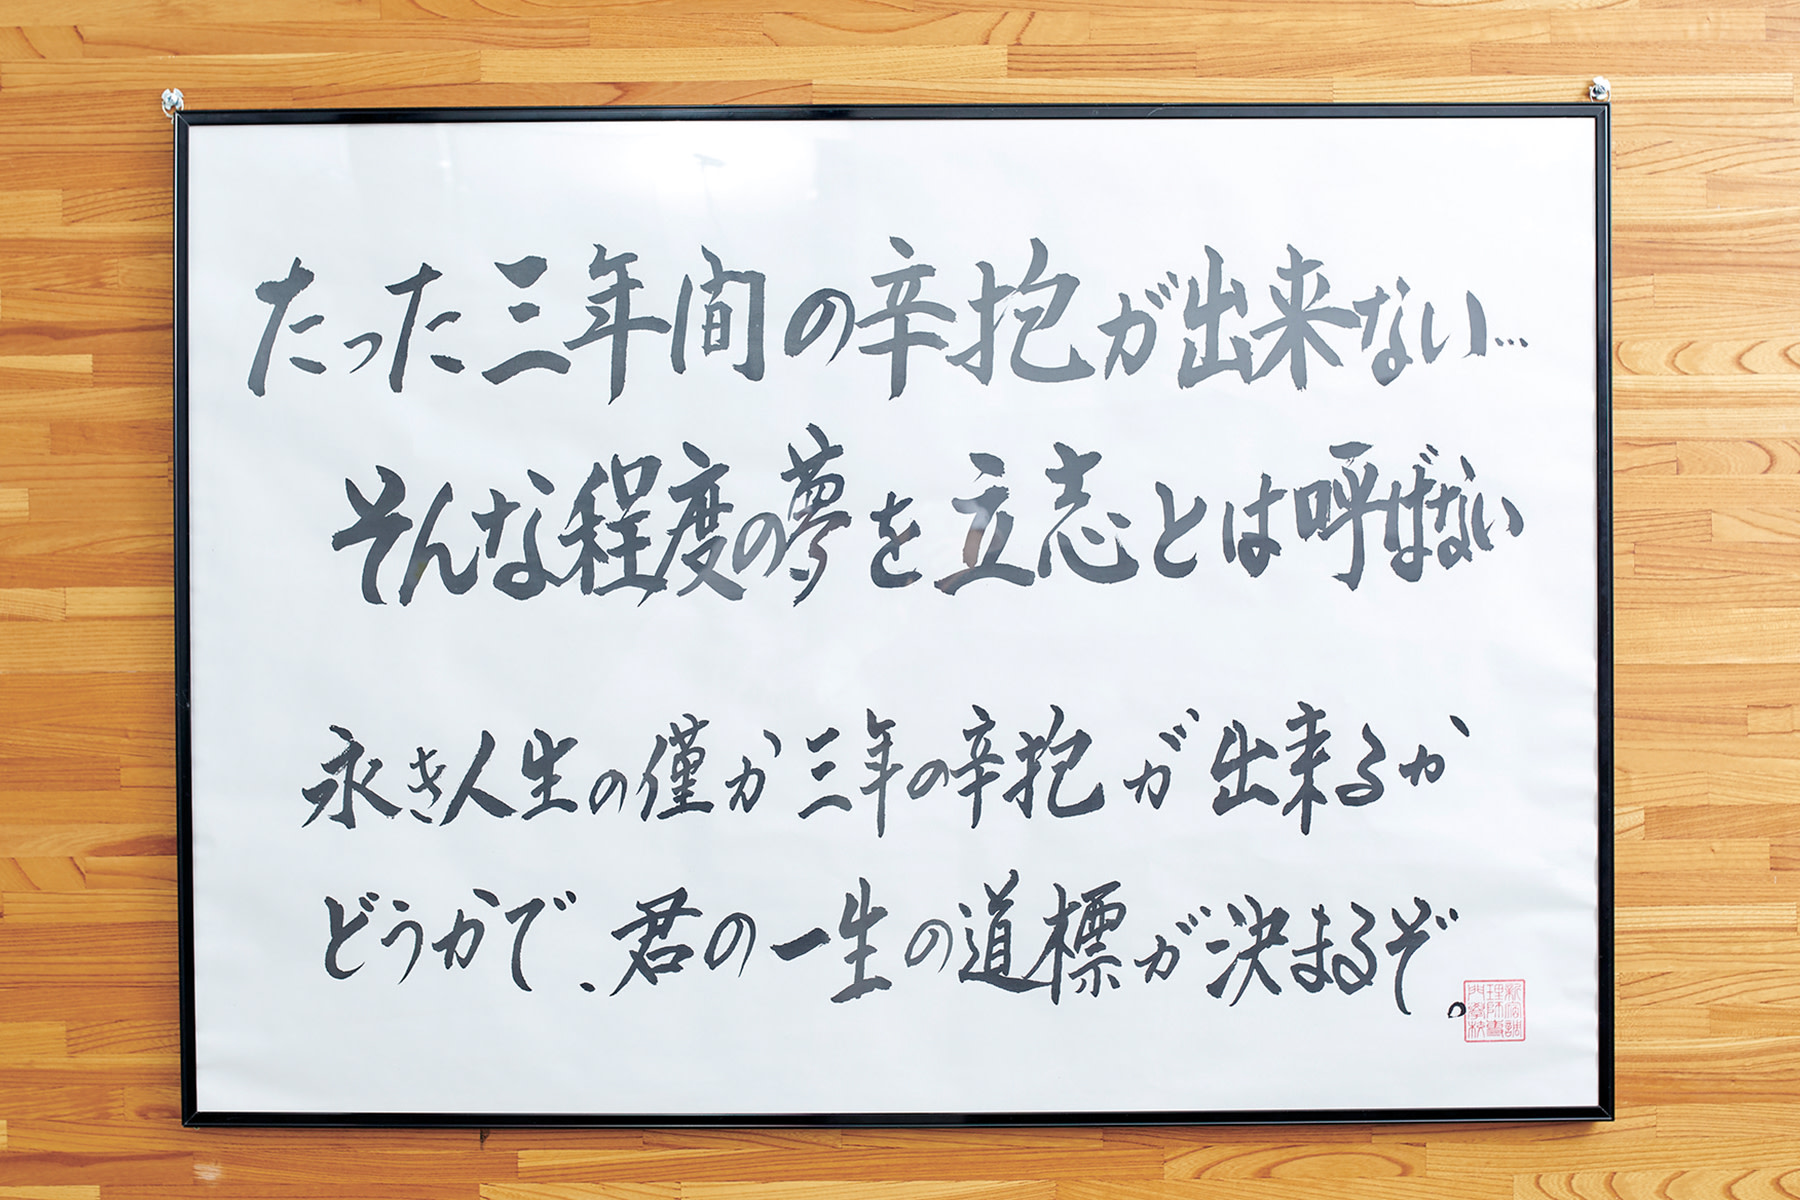 たった三年間の辛抱が出来ない…
そんな程度の夢を立志とは呼ばない
永き人生の僅か三年の辛抱が出来るか
どうかで、君の一生の道標が決まるぞ。
新宿調
理師專
門學校